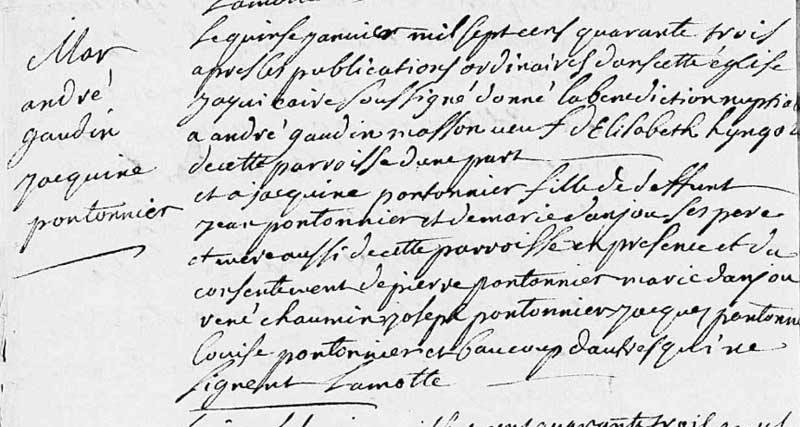 Lamotte
Mar
andré
gaudin
jacquine
pontonnier
Le quinse janvier mil sept cens quarante trois
apres les publications ordinaires dans cette église
jay vicaire soussigné donné la benediction nuptial
a andré gaudin masson veuf d'Elisabeth
de cette parroisse d'une part
et a jacquine pontonnier fille de deffunt
jean pontonnier et de marie danjou ses pere
et mere aussi de cette parroisse en presence et du
consentement de pierre pontonnier marie danjou
rené chaumin joseph pontonnier jacques pontonnie
Louise pontonnier et baucoup d'autres qui ne
signent Lamotte
quarante trois